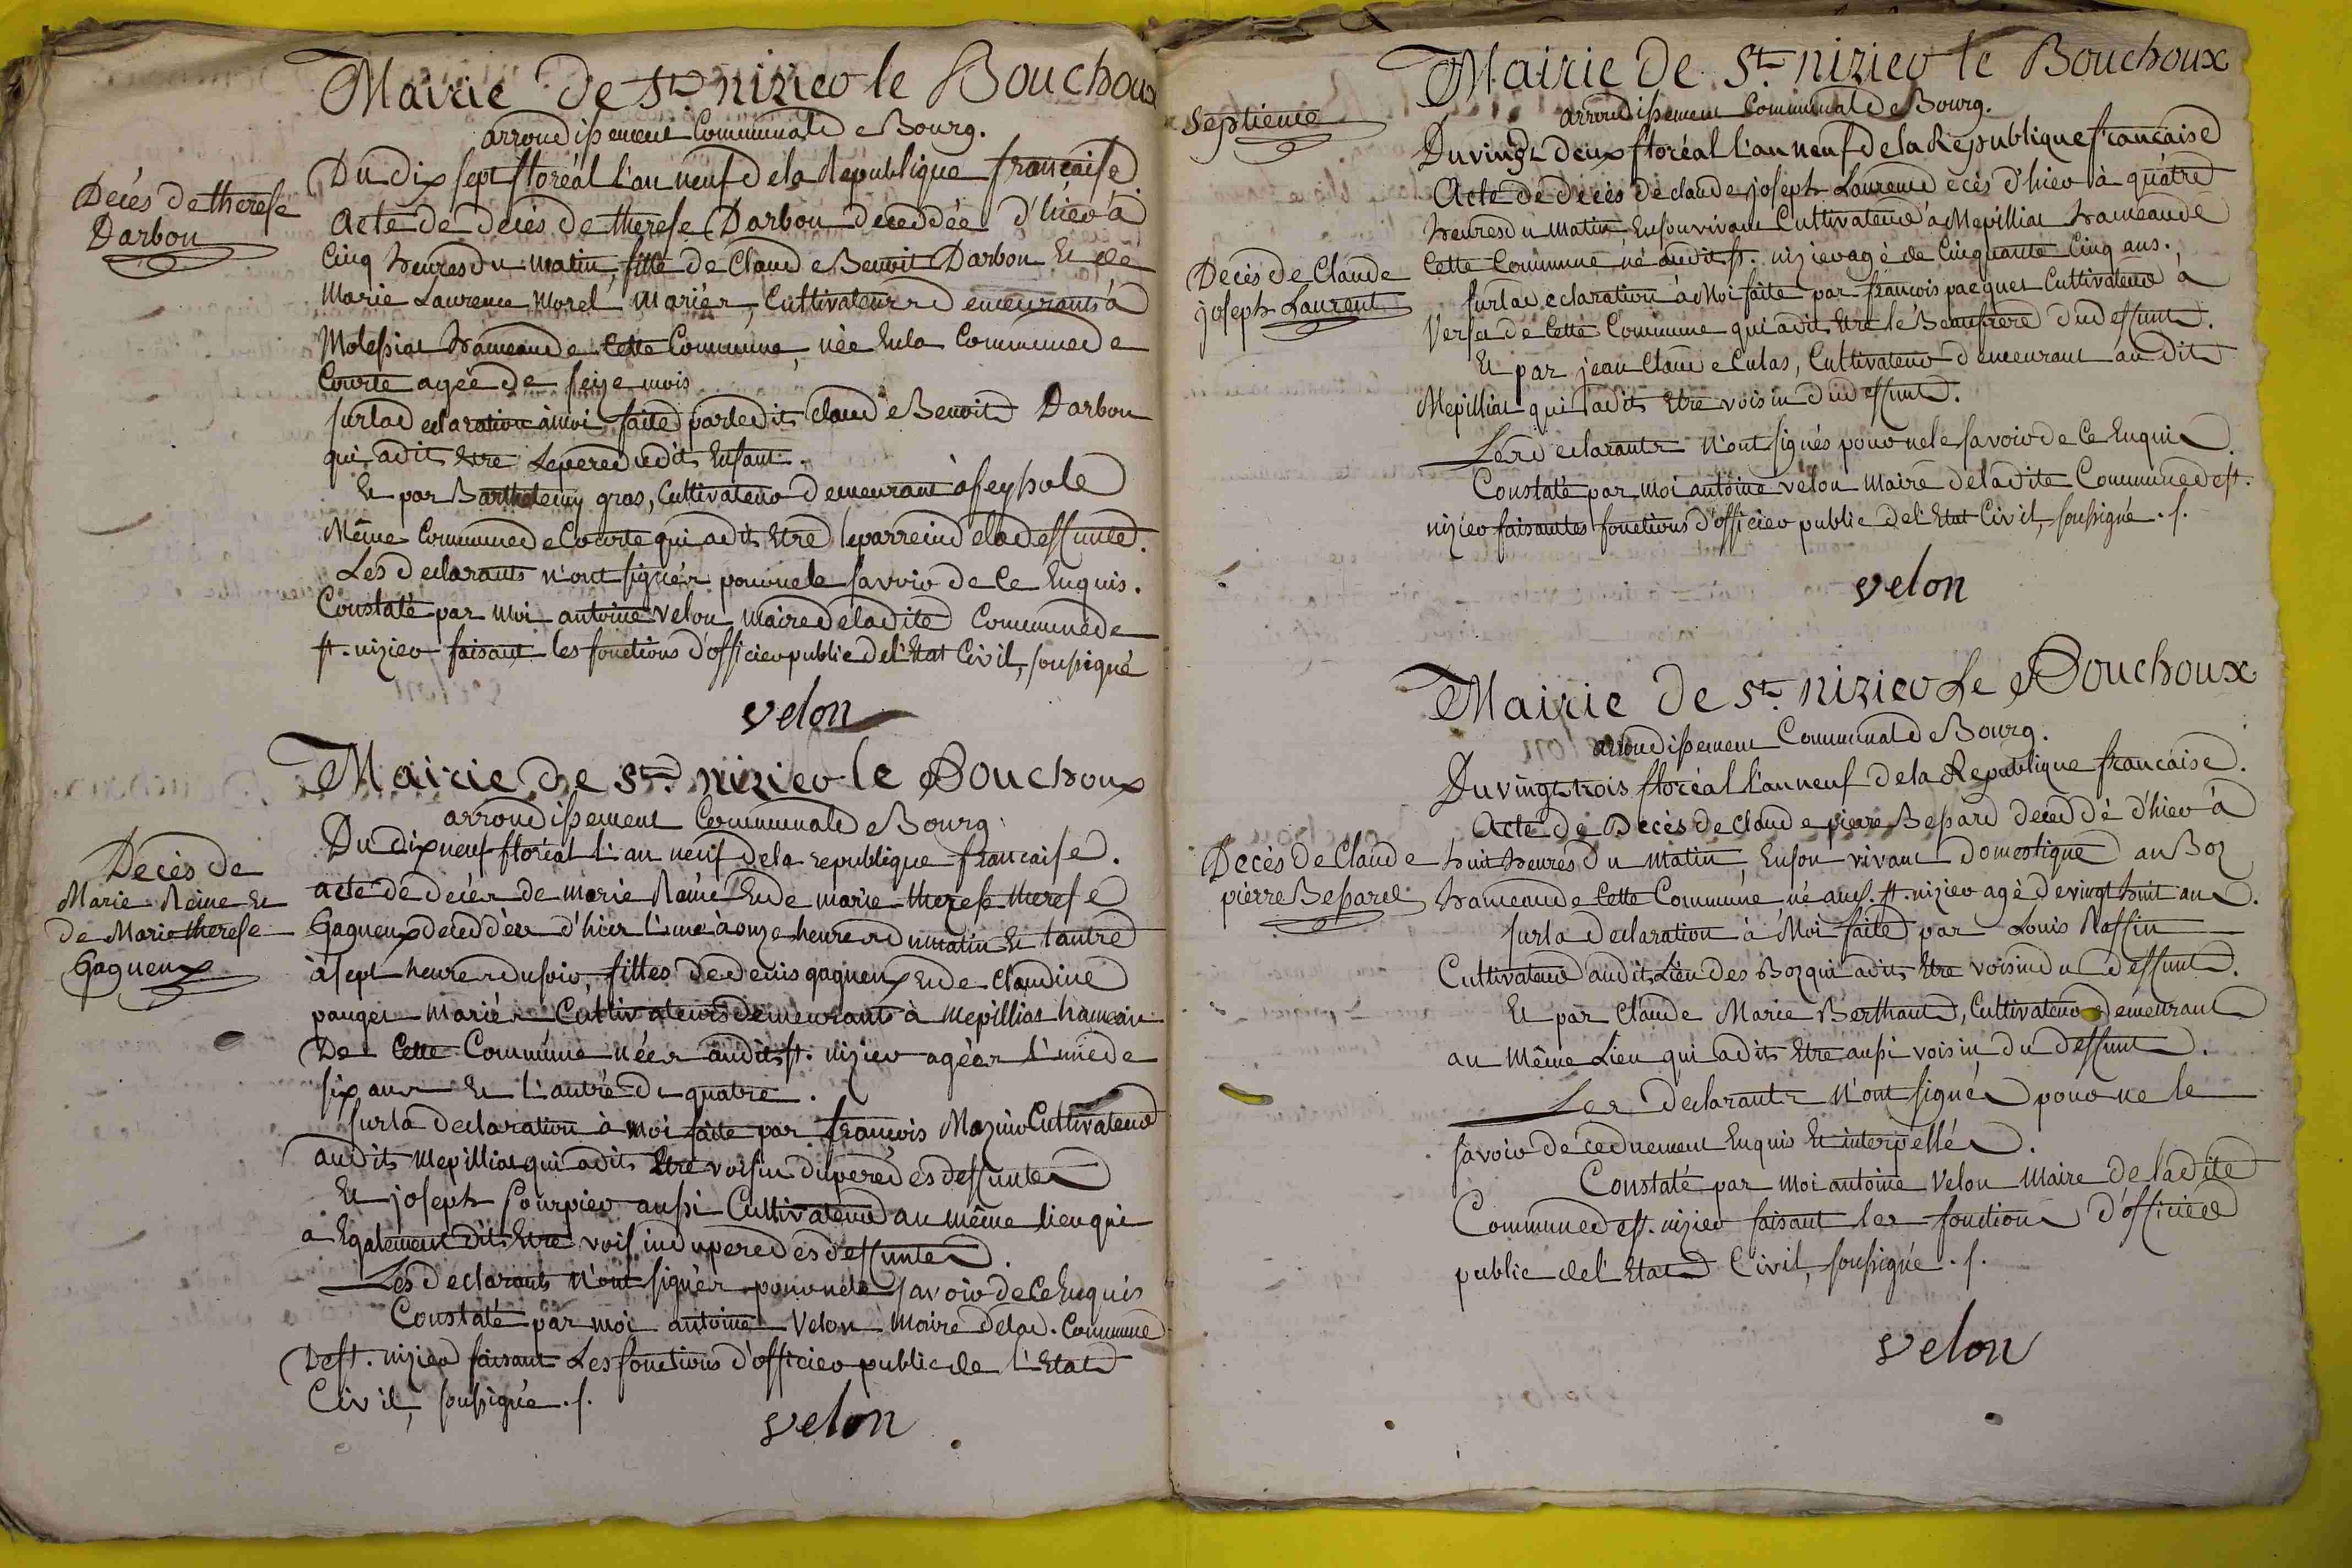 Mairie de St. nizier le Bouchoux
arrondissement Communal de Bourg.
Décès de therese
Darbon
Du dix sept floréal l'an neuf de la République française
Acte de decès de therese Darbon decedée d'hier à
Cinq heures du matin, fille de Claude Benoit Darbon Et de
Marie Laurence Morel mariés, Cultivateurs demeurants à
hameau de Cette Commune, née En la Commune de
Courte agée de seize mois
sur la declaration à moi faite par ledit claude Benoit Darbon
qui a dit Etre Le pere dudit Enfant.
Et par Barthelemy gros, Cultivateur demeurant à
Même Commune de Courte qui a dit Etre le parrein de la deffunte.
Les declarants n'ont signés pour ne le savoir de Ce Enquis.
Constaté par moi antoine velon maire de ladite Commune de
st. nizier faisant les fonctions d'officier public de l'Etat Civil, soussigné
velon
Mairie de St. nizier le Bouchoux
arrondissement Communal de Bourg.
Décès de
Marie Reine Et
de Marie therese
Gagneux
Du dix neuf floréal l'an neuf de la republique francaise.
acte de decès de marie Reine Et de marie therese therese
Gagneux decedées d'hier l'une à onze heures du matin Et l'autre
à sept heures du soir, filles de denis gagneux Et de Claudine
pauget mariés Cultivateurs demeurants à mepillias hameau
De Cette Commune nées audit st. nizier agées l'une de
six ans Et l'autre de quatre.
sur la declaration à moi faite par françois Cultivateur
audit Mepilliat qui a dit Etre voisin du pere des deffuntes
Et joseph aussi Cultivateur au même lieu qui
a Egalement dit Etre voisin du pere des deffuntes.
Les declarants n'ont signés pour ne le savoir de Ce Enquis
Constaté par moi antoine Velon Maire de lad. Commune
De st. nizier faisant Les fonctions d'officier public de l'Etat
Civil, soussigné .s.
velon
Mairie de St. nizier le Bouchoux
arrondissement Communal de Bourg.
Septieme
Du vingt deux floréal l'an neuf de la République française
Acte de decès de claude joseph Laurent decès d'hier à quatre
heures du matin, En son vivant Cultivateur à Mepilliat hameau de
Decès de Claude
joseph Laurent
Cette Commune né audit st. nizier agé de Cinquante Cinq ans.
sur la declaration à Moi faite par françois pacquet Cultivateur à
de Cette Commune qui a dit Etre le Beaufrere dud deffunt.
Et par jean Claude Culas, Cultivateur demeurant audit
Mepilliat qui a dit Etre voisin dud deffunt.
Les declarants n'ont signés pour ne le savoir de Ce Enquis.
Constaté par moi antoine velon maire de ladite Commune de st.
nizier faisant les fonctions d'officier public de l'Etat Civil, soussigné .s.
velon
Mairie de St. nizier Le Bouchoux
arrondissement Communal de Bourg.
Du vingt trois floréal l'an neuf de la République francaise.
Acte de Decès de Claude pierre Besard decedé d'hier à
Decès de Claude
pierre Besard
huit heures du matin, En son vivant Domestique au Boz
hameau de Cette Commune né aud. st. nizier agé de vingt huit ans.
sur la declaration à Moi faite par Louis Raffin
Cultivateur audit Lieu des Boz qui a dit Etre voisin du deffunt.
Et par Claude Marie Berthaud, Cultivateur demeurant
au même Lieu qui a dit Etre aussi voisin du deffunt.
Les declarants n'ont signés pour ne le
savoir de ce duement Enquis Et interpellés.
Constaté par moi antoine velon Maire de ladite
Commune de st. nizier faisant les fonctions d'officier
public de l'Etat Civil, soussigné .s.
velon